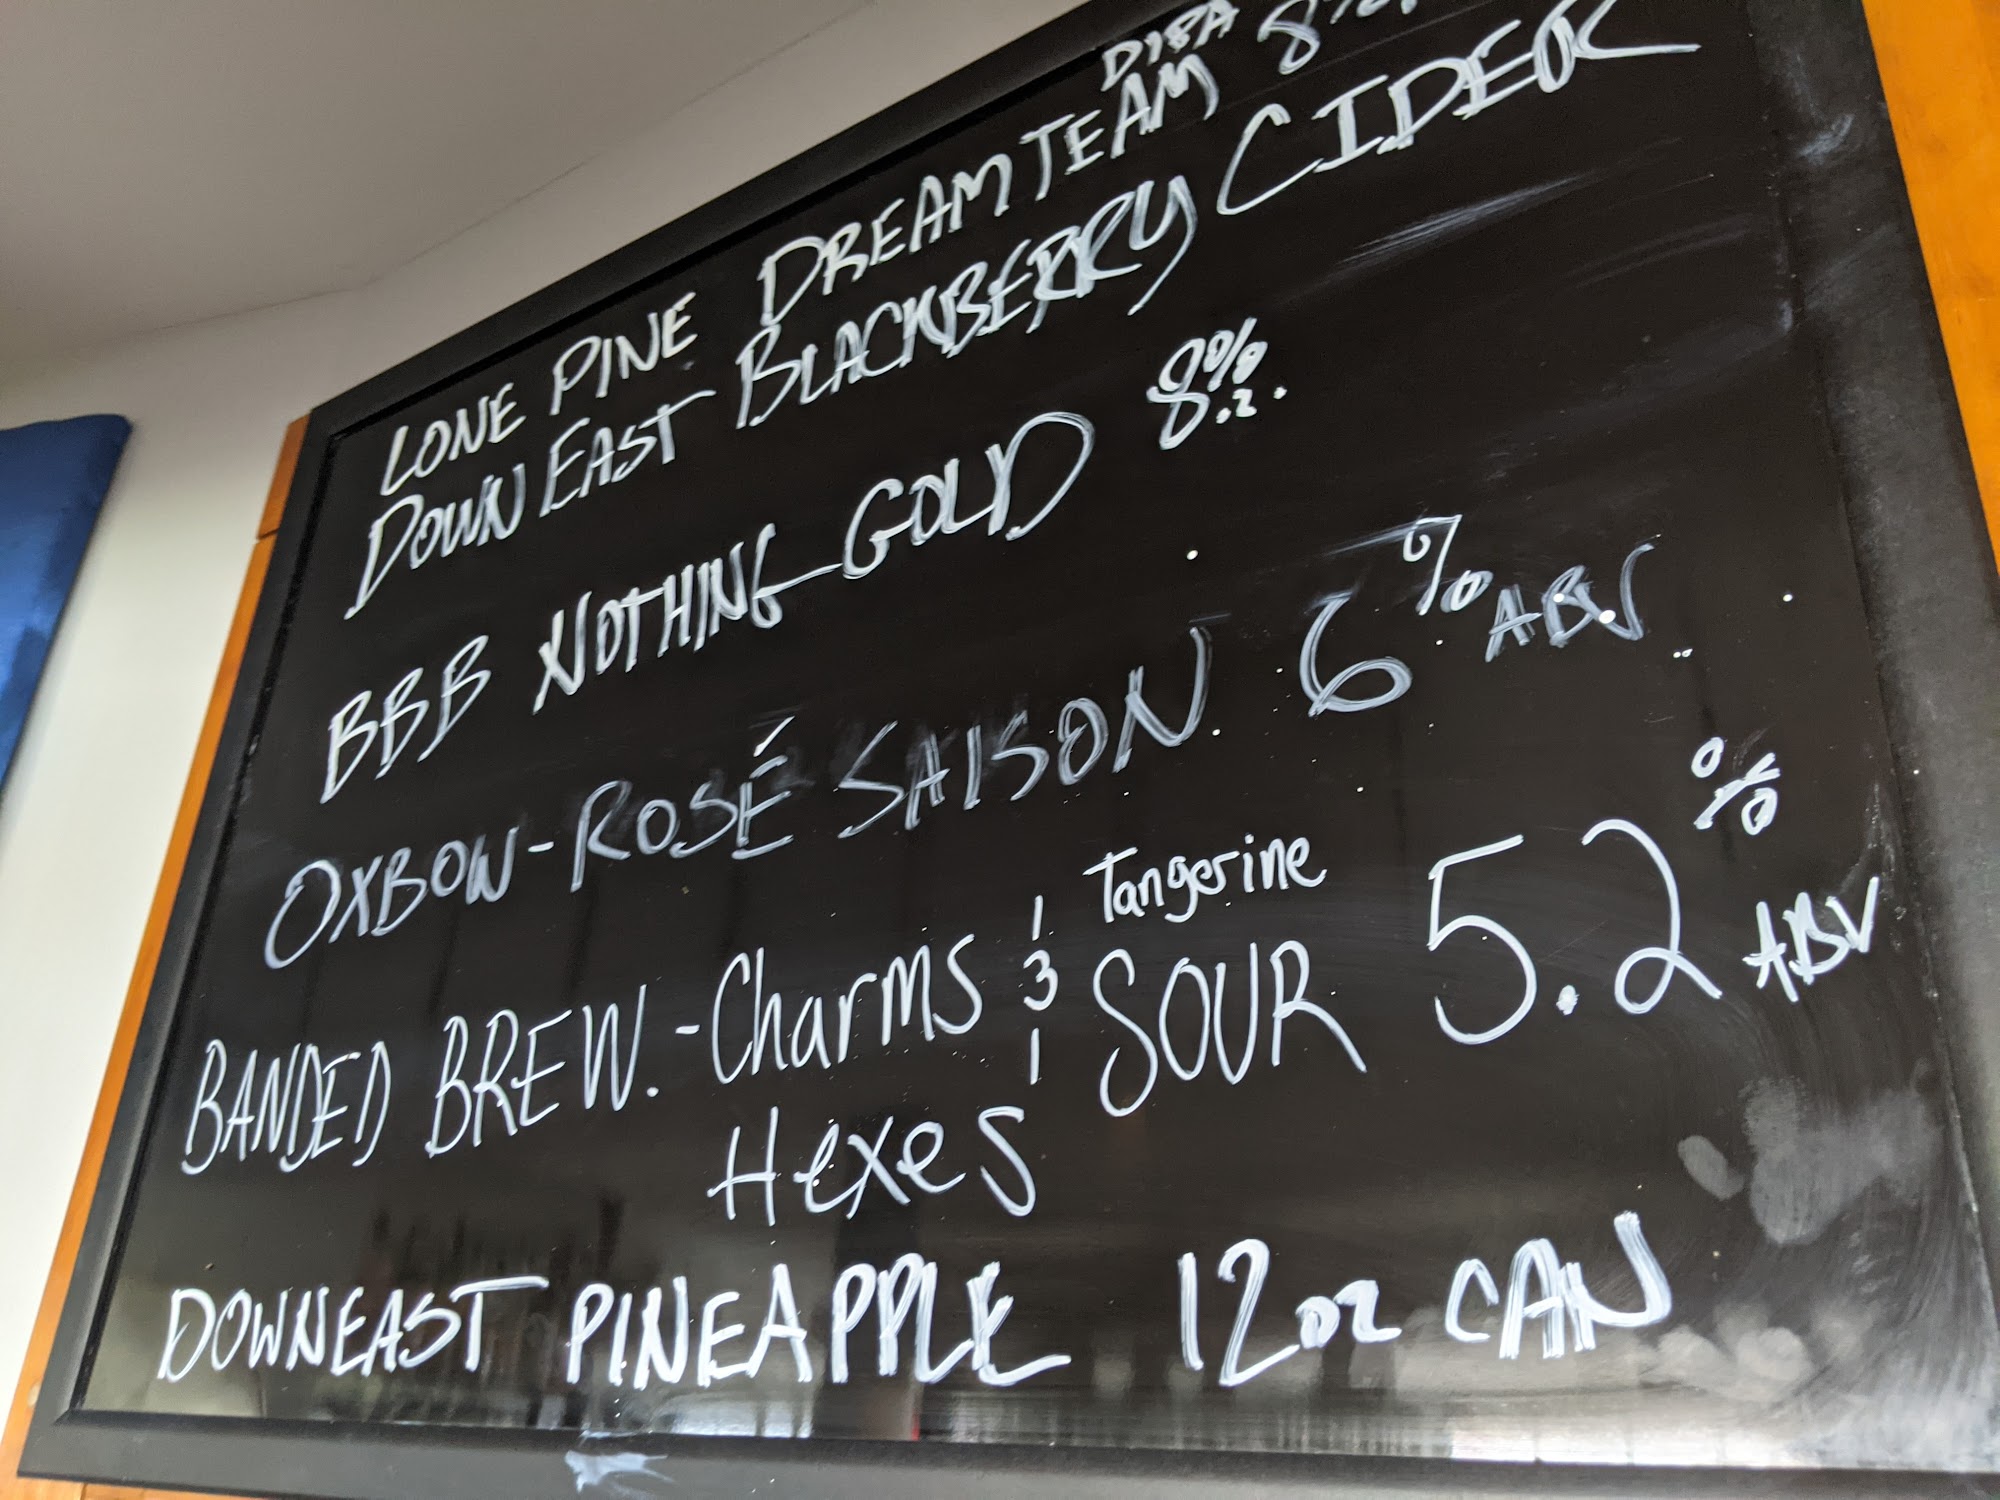 LONE PINE DREAM TEAM DIPA 8%
DOWN EAST BLACKBERRY CIDER
BBB NOTHING GOLD 8.2%
OXBOW - ROSÉ SAISON 6% ABV
BANDED BREW. - Charms & Hexes Tangerine SOUR 5.2% ABV
DOWNEAST PINEAPPLE 12oz CAN